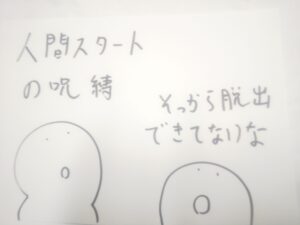 人間スタート
の呪縛
そっから脱出
できてないな